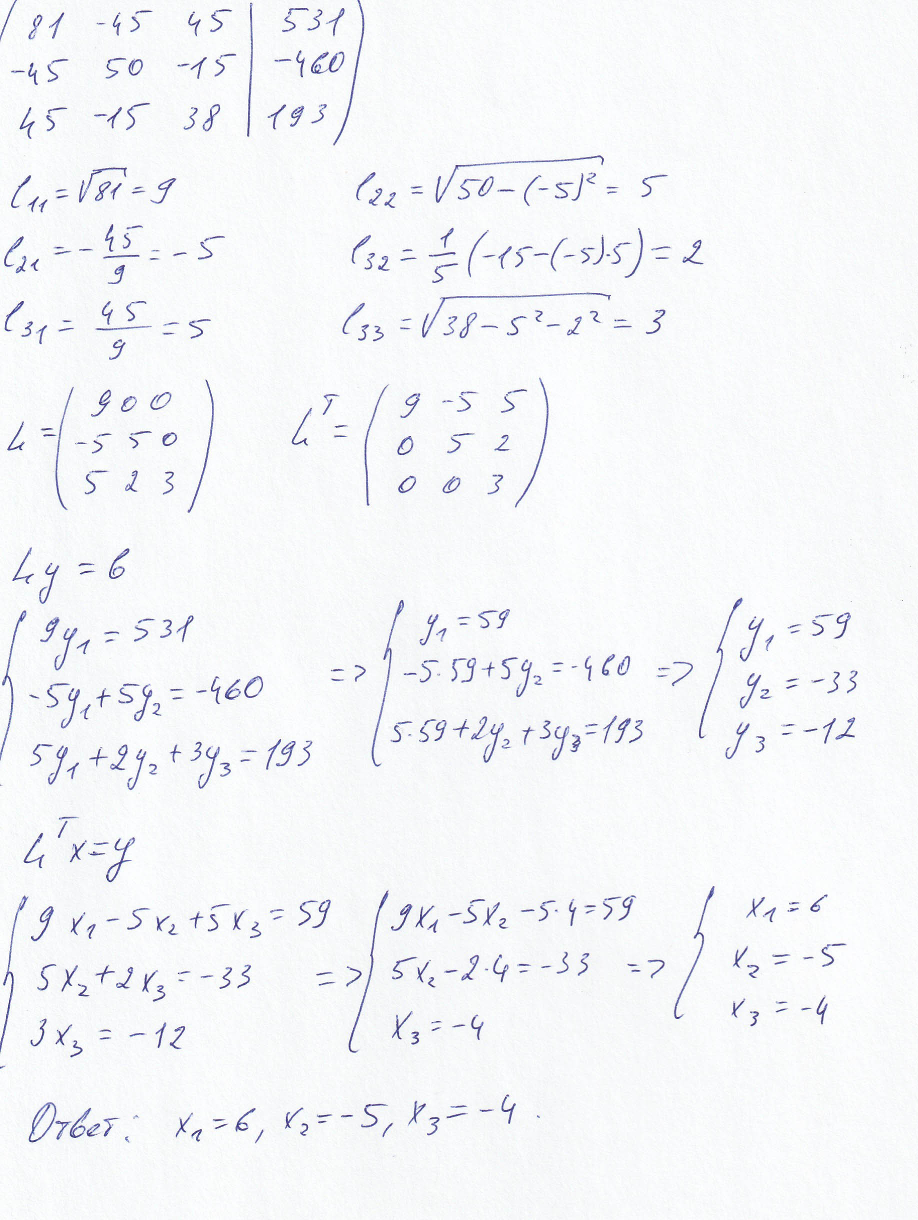 81 -45 45 | 531
-45 50 -15 | -460
45 -15 38 | 193
l₁₁ = √81 = 9
l₂₂ = √(50-(-5)² = 5
l₂₁ = -45/9 = -5
l₃₂ = 1/5 (-15-(-5)·5) = 2
l₃₁ = 45/9 = 5
l₃₃ = √(38-5²-2²) = 3
L = (9 0 0
-5 5 0
5 2 3)
Lᵀ = (9 -5 5
0 5 2
0 0 3)
Ly = b
{ 9y₁ = 531
-5y₁+5y₂ = -460
5y₁+2y₂+3y₃ = 193
=> { y₁ = 59
-5·59+5y₂ = -460
5·59+2y₂+3y₃ = 193
=> { y₁ = 59
y₂ = -33
y₃ = -12
Lᵀx = y
{ 9x₁-5x₂+5x₃ = 59
5x₂+2x₃ = -33
3x₃ = -12
=> { 9x₁-5x₂-5·4 = 59
5x₂-2·4 = -33
x₃ = -4
=> { x₁ = 6
x₂ = -5
x₃ = -4
Ответ: x₁ = 6, x₂ = -5, x₃ = -4.